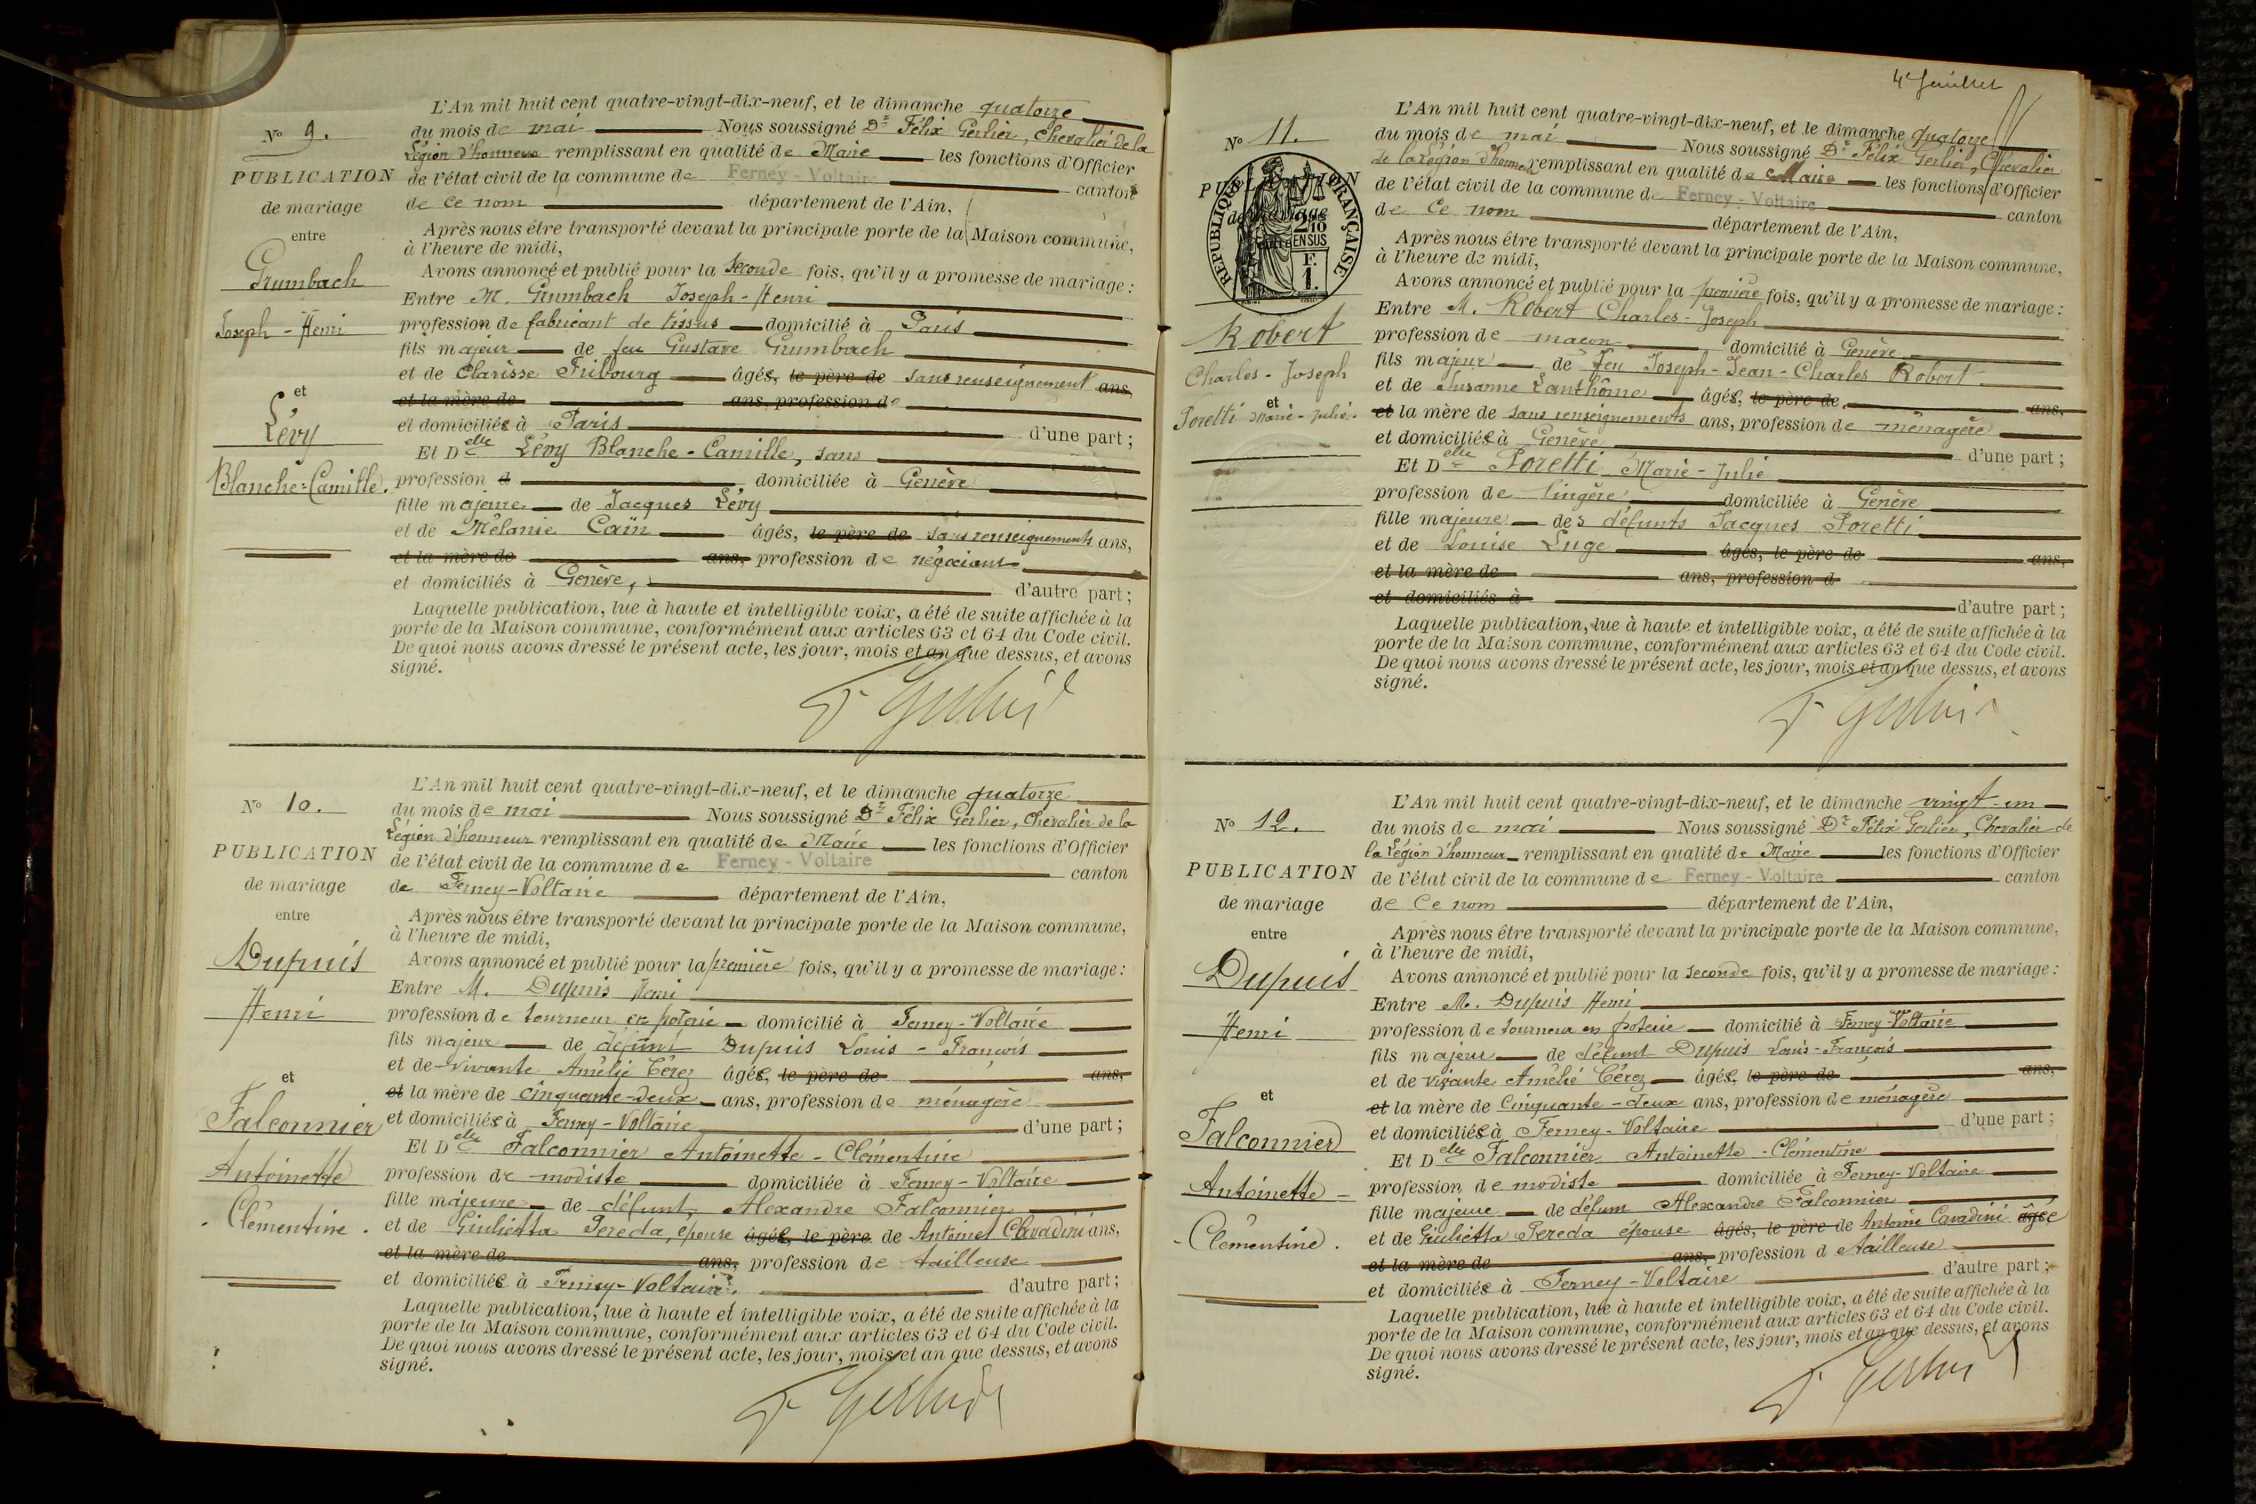 L'An mil huit cent quatre-vingt-dix-neuf, et le dimanche quatorze
No 9.
du mois de mai Nous soussigné Dr Félix Gerlier, Chevalier de la
Légion d'honneur remplissant en qualité de Maire les fonctions d'Officier
PUBLICATION
de l'état civil de la commune de Ferney-Voltaire canton
de mariage
de ce nom département de l'Ain,
entre
Après nous être transporté devant la principale porte de la Maison commune,
à l'heure de midi,
Grumbach
Avons annoncé et publié pour la seconde fois, qu'il y a promesse de mariage :
Entre M. Grumbach Joseph-Henri
Joseph-Henri
profession de fabricant de tissus domicilié à Paris
fils majeur de feu Gustave Grumbach
et de Clarisse Fribourg âgés, le père de sans renseignement ans,
et
et la mère de ans, profession de
Lévy
et domiciliés à Paris d'une part ;
Et Delle Lévy Blanche-Camille, sans
Blanche-Camille.
profession d domiciliée à Genève
fille majeure de Jacques Lévy
et de Mélanie Caïn âgés, le père de sans renseignements ans,
et la mère de ans, profession de négociant
et domiciliés à Genève, d'autre part ;
Laquelle publication, lue à haute et intelligible voix, a été de suite affichée à la
porte de la Maison commune, conformément aux articles 63 et 64 du Code civil.
De quoi nous avons dressé le présent acte, les jour, mois et an que dessus, et avons
signé.
F Gerlier
L'An mil huit cent quatre-vingt-dix-neuf, et le dimanche quatorze
No 10.
du mois de mai Nous soussigné Dr Félix Gerlier, Chevalier de la
Légion d'honneur remplissant en qualité de Maire les fonctions d'Officier
PUBLICATION
de l'état civil de la commune de Ferney-Voltaire canton
de mariage
de Ferney-Voltaire département de l'Ain,
entre
Après nous être transporté devant la principale porte de la Maison commune,
à l'heure de midi,
Dupuis
Avons annoncé et publié pour la première fois, qu'il y a promesse de mariage :
Entre M. Dupuis Henri
Henri
profession de tourneur en poterie domicilié à Ferney-Voltaire
fils majeur de défunt Dupuis Louis-François
et de vivante Amélie Cérez âgés, le père de ans,
et
et la mère de cinquante-deux ans, profession de ménagère
Falconnier
et domiciliés à Ferney-Voltaire d'une part ;
Et Delle Falconnier Antoinette-Clémentine
Antoinette
profession de modiste domiciliée à Ferney-Voltaire
fille majeure de défunt, Alexandre Falconnier
Clémentine.
et de Giulietta Pereda, épouse âgés, le père de Antoine Cavadini ans,
et la mère de ans, profession de tailleuse
et domiciliés à Ferney-Voltaire. d'autre part ;
Laquelle publication, lue à haute et intelligible voix, a été de suite affichée à la
porte de la Maison commune, conformément aux articles 63 et 64 du Code civil.
De quoi nous avons dressé le présent acte, les jour, mois et an que dessus, et avons
signé.
F Gerlier
4e feuillet
L'An mil huit cent quatre-vingt-dix-neuf, et le dimanche quatorze
No 11.
du mois de mai Nous soussigné Dr Félix Gerlier, Chevalier
de la Légion d'honneur remplissant en qualité de Maire les fonctions d'Officier
PUBLICATION
de l'état civil de la commune de Ferney-Voltaire canton
de mariage
de ce nom département de l'Ain,
entre
RÉPUBLIQUE FRANÇAISE
2/10 EN SUS
F. 1.
Après nous être transporté devant la principale porte de la Maison commune,
à l'heure de midi,
Avons annoncé et publié pour la première fois, qu'il y a promesse de mariage :
Entre M. Robert Charles-Joseph
Robert
profession de maçon domicilié à Genève
fils majeur de feu Joseph-Jean-Charles Robert
Charles-Joseph
et de Susanne Lanthôme âgés, le père de ans,
et
et la mère de sans renseignements ans, profession de ménagère
Poretti Marie-Julie.
et domiciliés à Genève d'une part ;
Et Delle Poretti Marie-Julie
profession de lingère domiciliée à Genève
fille majeure des défunts Jacques Poretti
et de Louise Luge âgés, le père de ans,
et la mère de ans, profession d
et domiciliés à d'autre part ;
Laquelle publication, lue à haute et intelligible voix, a été de suite affichée à la
porte de la Maison commune, conformément aux articles 63 et 64 du Code civil.
De quoi nous avons dressé le présent acte, les jour, mois et an que dessus, et avons
signé.
F Gerlier
L'An mil huit cent quatre-vingt-dix-neuf, et le dimanche vingt-un
No 12.
du mois de mai Nous soussigné Dr Félix Gerlier, Chevalier de
la Légion d'honneur remplissant en qualité de Maire les fonctions d'Officier
PUBLICATION
de l'état civil de la commune de Ferney-Voltaire canton
de mariage
de ce nom département de l'Ain,
entre
Après nous être transporté devant la principale porte de la Maison commune,
à l'heure de midi,
Dupuis
Avons annoncé et publié pour la seconde fois, qu'il y a promesse de mariage :
Entre M. Dupuis Henri
Henri
profession de tourneur en poterie domicilié à Ferney-Voltaire
fils majeur de défunt Dupuis Louis-François
et de vivante Amélie Cérez âgés, le père de ans,
et
et la mère de cinquante-deux ans, profession de ménagère
Falconnier
et domiciliés à Ferney-Voltaire d'une part ;
Et Delle Falconnier Antoinette-Clémentine
Antoinette-
profession de modiste domiciliée à Ferney-Voltaire
fille majeure de défunt Alexandre Falconnier
Clémentine.
et de Giulietta Pereda épouse âgés, le père de Antoine Cavadini âgée
et la mère de ans, profession de tailleuse
et domiciliés à Ferney-Voltaire d'autre part ;
Laquelle publication, lue à haute et intelligible voix, a été de suite affichée à la
porte de la Maison commune, conformément aux articles 63 et 64 du Code civil.
De quoi nous avons dressé le présent acte, les jour, mois et an que dessus, et avons
signé.
F Gerlier